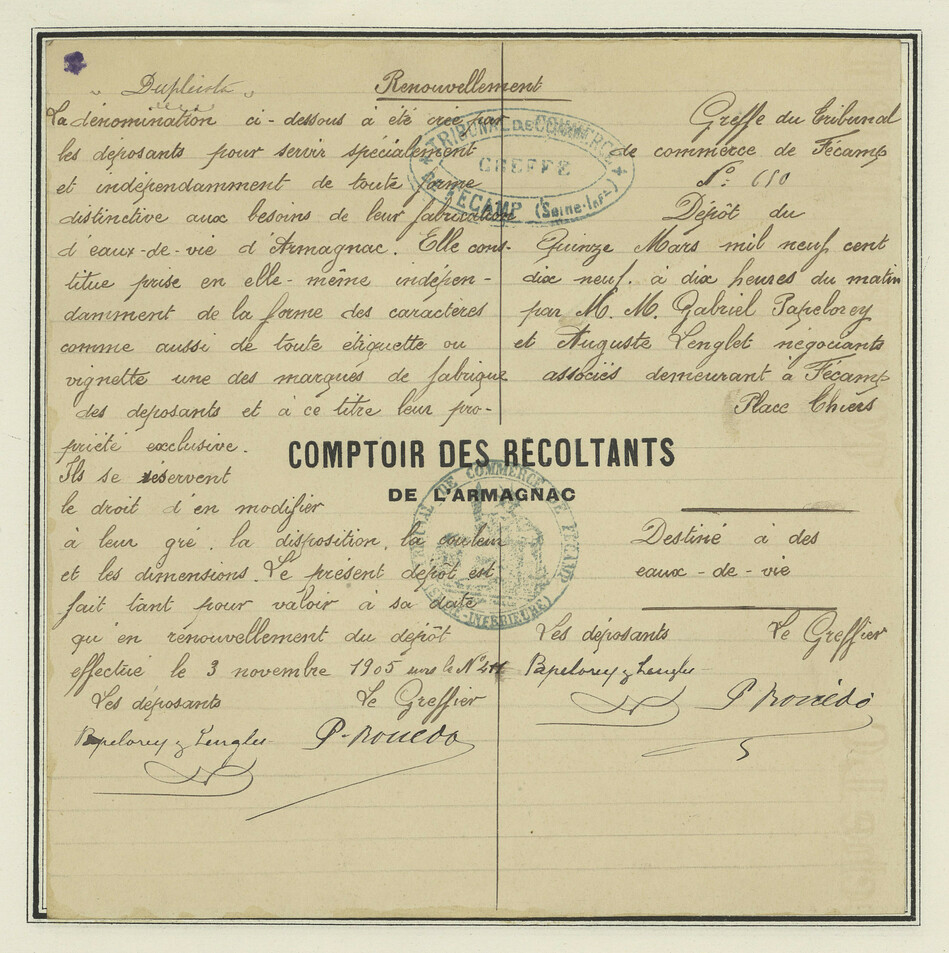 " Duplicata "
Renouvellement
La dénomination ci-dessous a été créé par
les déposants pour servir spécialement
et indépendamment de toute forme
distinctive aux besoins de leur fabrication
d'eaux-de-vie d'Armagnac. Elle cons-
titue prise en elle-même indépen-
damment de la forme des caractères
comme aussi de toute étiquette ou
vignette une des marques de fabrique
des déposants et à ce titre leur pro-
priété exclusive.
Ils se réservent
le droit d'en modifier
à leur gré, la disposition, la couleur
et les dimensions. Le présent dépôt est
fait tant pour valoir à sa date
qu'en renouvellement du dépôt
effectué le 3 novembre 1905 sous le N°
Les déposants Le Greffier
Papelorey & Lenglet P. Bonédo
Greffe du Tribunal
de commerce de Fécamp
N°: 650
Dépôt du
Quinze Mars mil neuf cent
dix neuf. à dix heures du matin
par M. M. Gabriel Papelorey
et Auguste Lenglet négociants
associés demeurant à Fécamp
Place Thiers
TRIBUNAL DE COMMERCE
GREFFE
DE FÉCAMP (Seine-Infre)
COMPTOIR DES RÉCOLTANTS
DE L'ARMAGNAC
TRIBUNAL DE COMMERCE DE FÉCAMP
(SEINE-INFÉRIEURE)
Destiné à des
eaux-de-vie
Les déposants Le Greffier
Papelorey & Lenglet